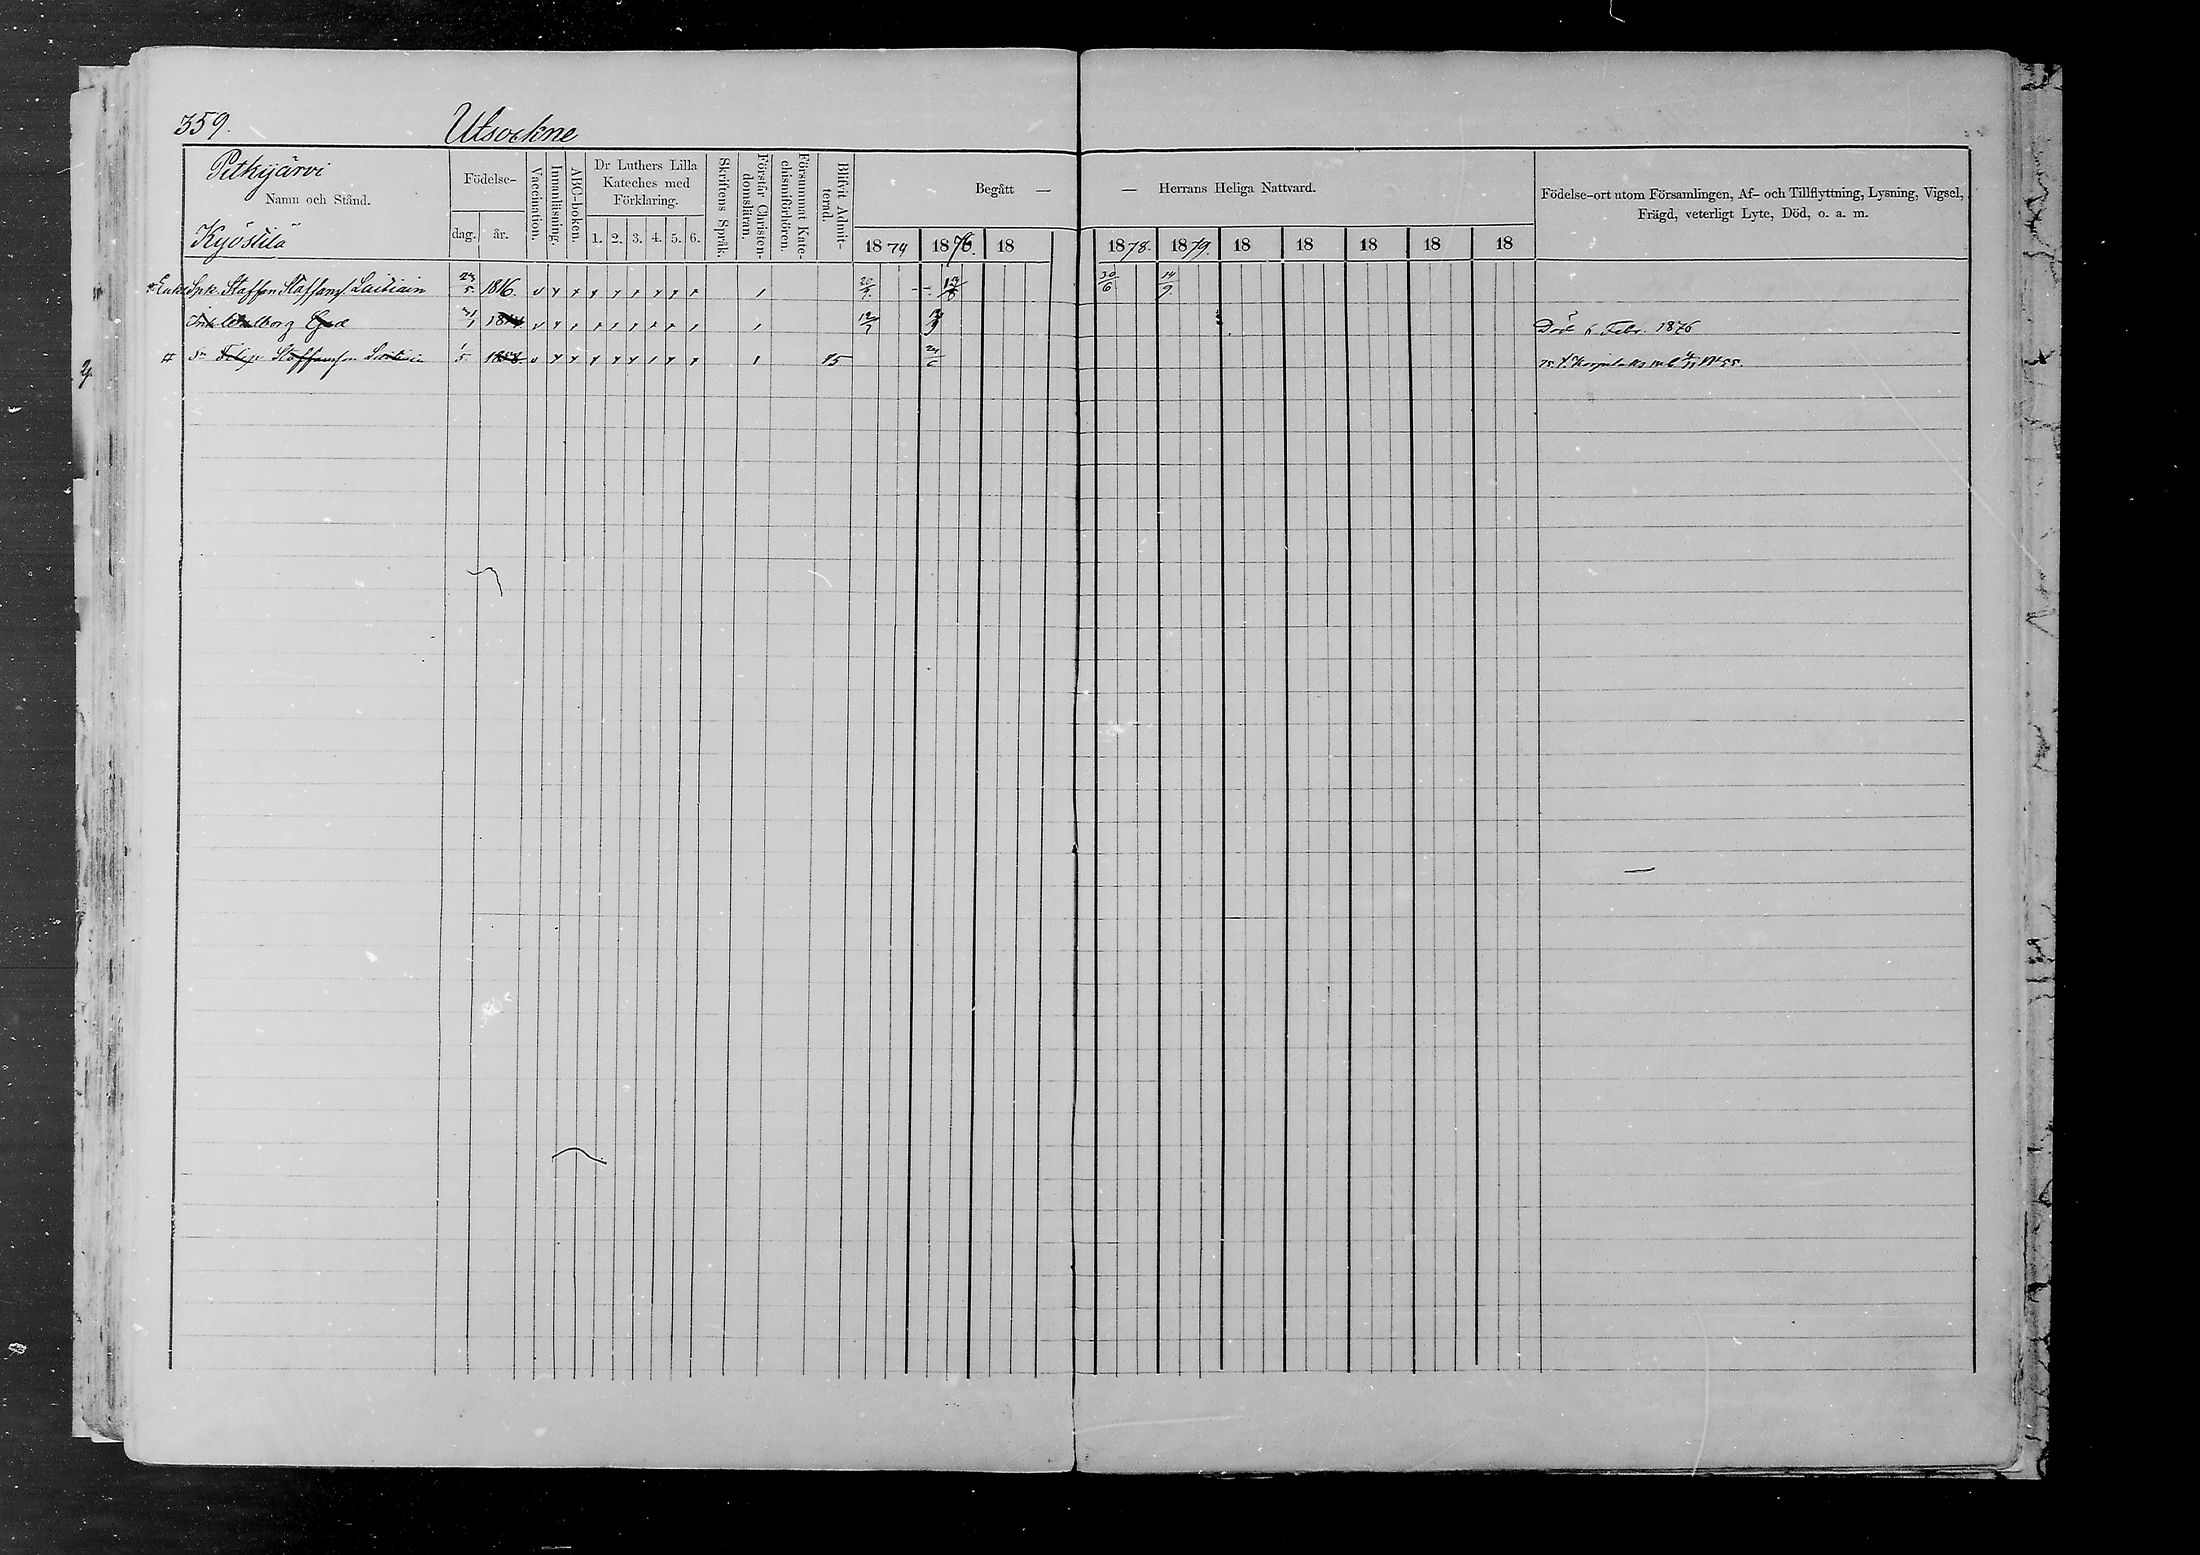 359.
Utsockne
Pitkijärvi
Namn och Stånd.
Kyöstilä
Födelse-
dag. år.
Vaccination.
Innanläsning.
ABC-boken.
Dr Luthers Lilla
Kateches med
Förklaring.
1. 2. 3. 4. 5. 6.
Skriftens Språk.
Försfår Christen-
domsläran.
Försummat Kate-
chismiförhören.
Blifvit Admit-
terad.
Begått —
1874 1876. 18
— Herrans Heliga Nattvard.
1878. 1879. 18 18 18 18 18
Födelse-ort utom Församlingen, Af- och Tillflyttning, Lysning, Vigsel,
Frägd, veterligt Lyte, Död, o. a. m.
Enkl Spk. Staffan Staffans Laitiain 23/5 1816. 20/9. 30/6 14/9.
Walborg 31/1 12/7 Död 6 Febr. 1876
Sn Filip Staffansson Laitiain 1/5 1858. 75 24/6